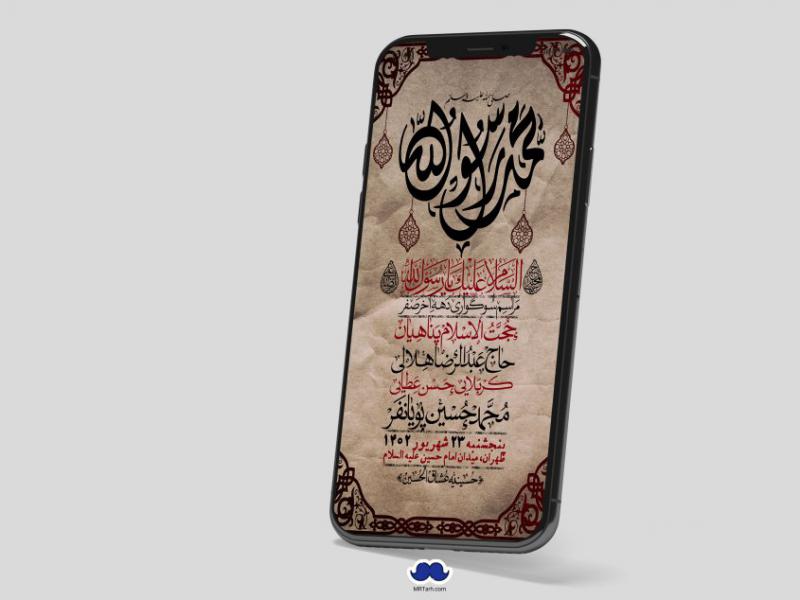 صلی الله علیه وسلم
محمد رسول الله
السلام علیک یا رسول الله
مراسم سوگواری دهه آخر صفر
حجت الاسلام پناهیان
حاج عبدالرضا هلالی
کربلایی حسن عطایی
محمدحسین پویانفر
پنجشنبه ۲۳ شهریور ۱۴۰۲
طهران، میدان امام حسین علیه السلام
حسینیه عشاق الحسین
MRTarh.com